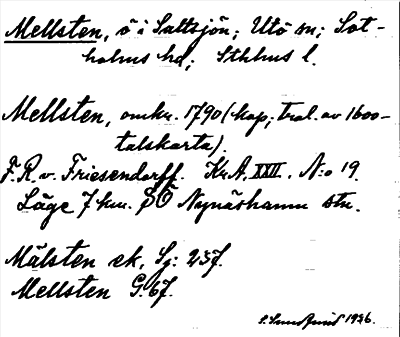 Mellsten, ö i Saltsjön; Utö sn; Sot-
holms hd; Sthlms l.
Mellsten, omkr. 1790 (kop; tral. av 1600-
talskarta).
F.R. v. Friesendorff. Kr.A. XXII. N:o 19.
Läge 7 km. SO Nynäshamn stn.
Mälsten ek. Sg: 257.
Mellsten G. 67.
1936.